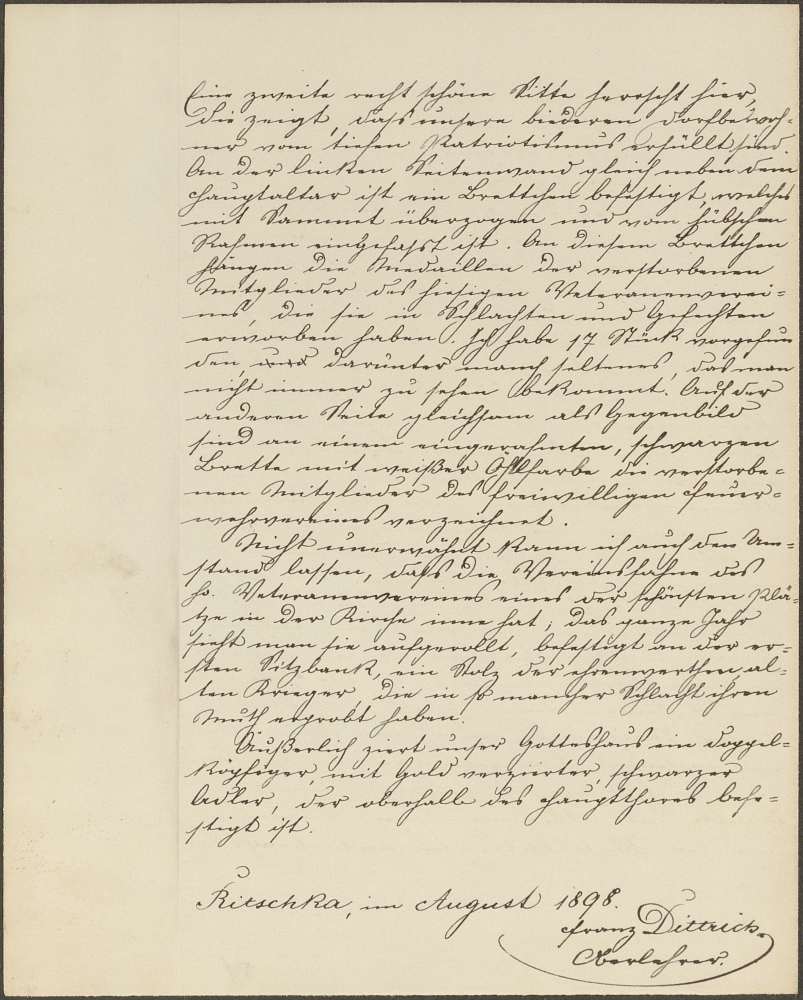 Eine zweite recht schöne Sitte herrscht hier,
die zeigt, dass unsere biederen Dorfbewoh-
ner vom tiefen Patriotismus erfüllt sind.
An der linken Seitenwand gleich neben dem
Hauptaltar ist ein Brettchen befestigt, welches
mit Sammet überzogen und vom hübschen
Rahmen eingefasst ist. An diesem Brettchen
hängen die Medaillen der verstorbenen
Mitglieder des hiesigen Veteranenverei-
nes, die sie in Schlachten und Gefechten
erworben haben. Ich habe 17 Stück vorgefun
den, und darunter manch seltenes, das man
nicht immer zu sehen bekommt. Auf der
anderen Seite gleichsam als Gegenbild
sind an einem eingerahmten, schwarzen
Brette mit weißer Ölfarbe die verstorbe-
nen Mitglieder des freiwilligen Feuer-
wehrvereines verzeichnet.
Nicht unerwähnt kann ich auch den Um-
stand lassen, dass die Vereinsfahne des
ho. Veteranenvereines eines der schönsten Plä-
tze in der Kirche inne hat; das ganze Jahr
sieht man sie aufgerollt, befestigt an der er-
sten Sitzbank, ein Stolz der ehrenwerthen, al-
ten Krieger, die in so mancher Schlacht ihren
Muth erprobt haben.
Äußerlich ziert unser Gotteshaus ein doppel-
köpfiger, mit Gold verzierter, schwarzer
Adler, der oberhalb des Hauptthores befe-
stigt ist.
Ritschka, im August 1898.
Franz Dittrich
Oberlehrer.